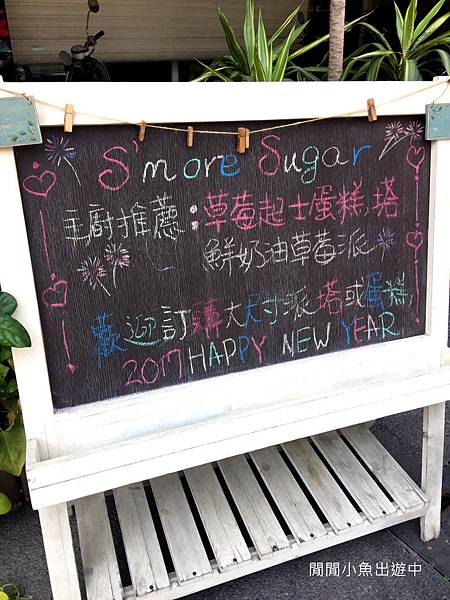 S'more Sugar
主廚推薦：草莓起士蛋糕,塔
鮮奶油草莓派
歡迎訂購大尺寸派塔或蛋糕,
2017 HAPPY NEW YEAR
閒閒小魚出遊中